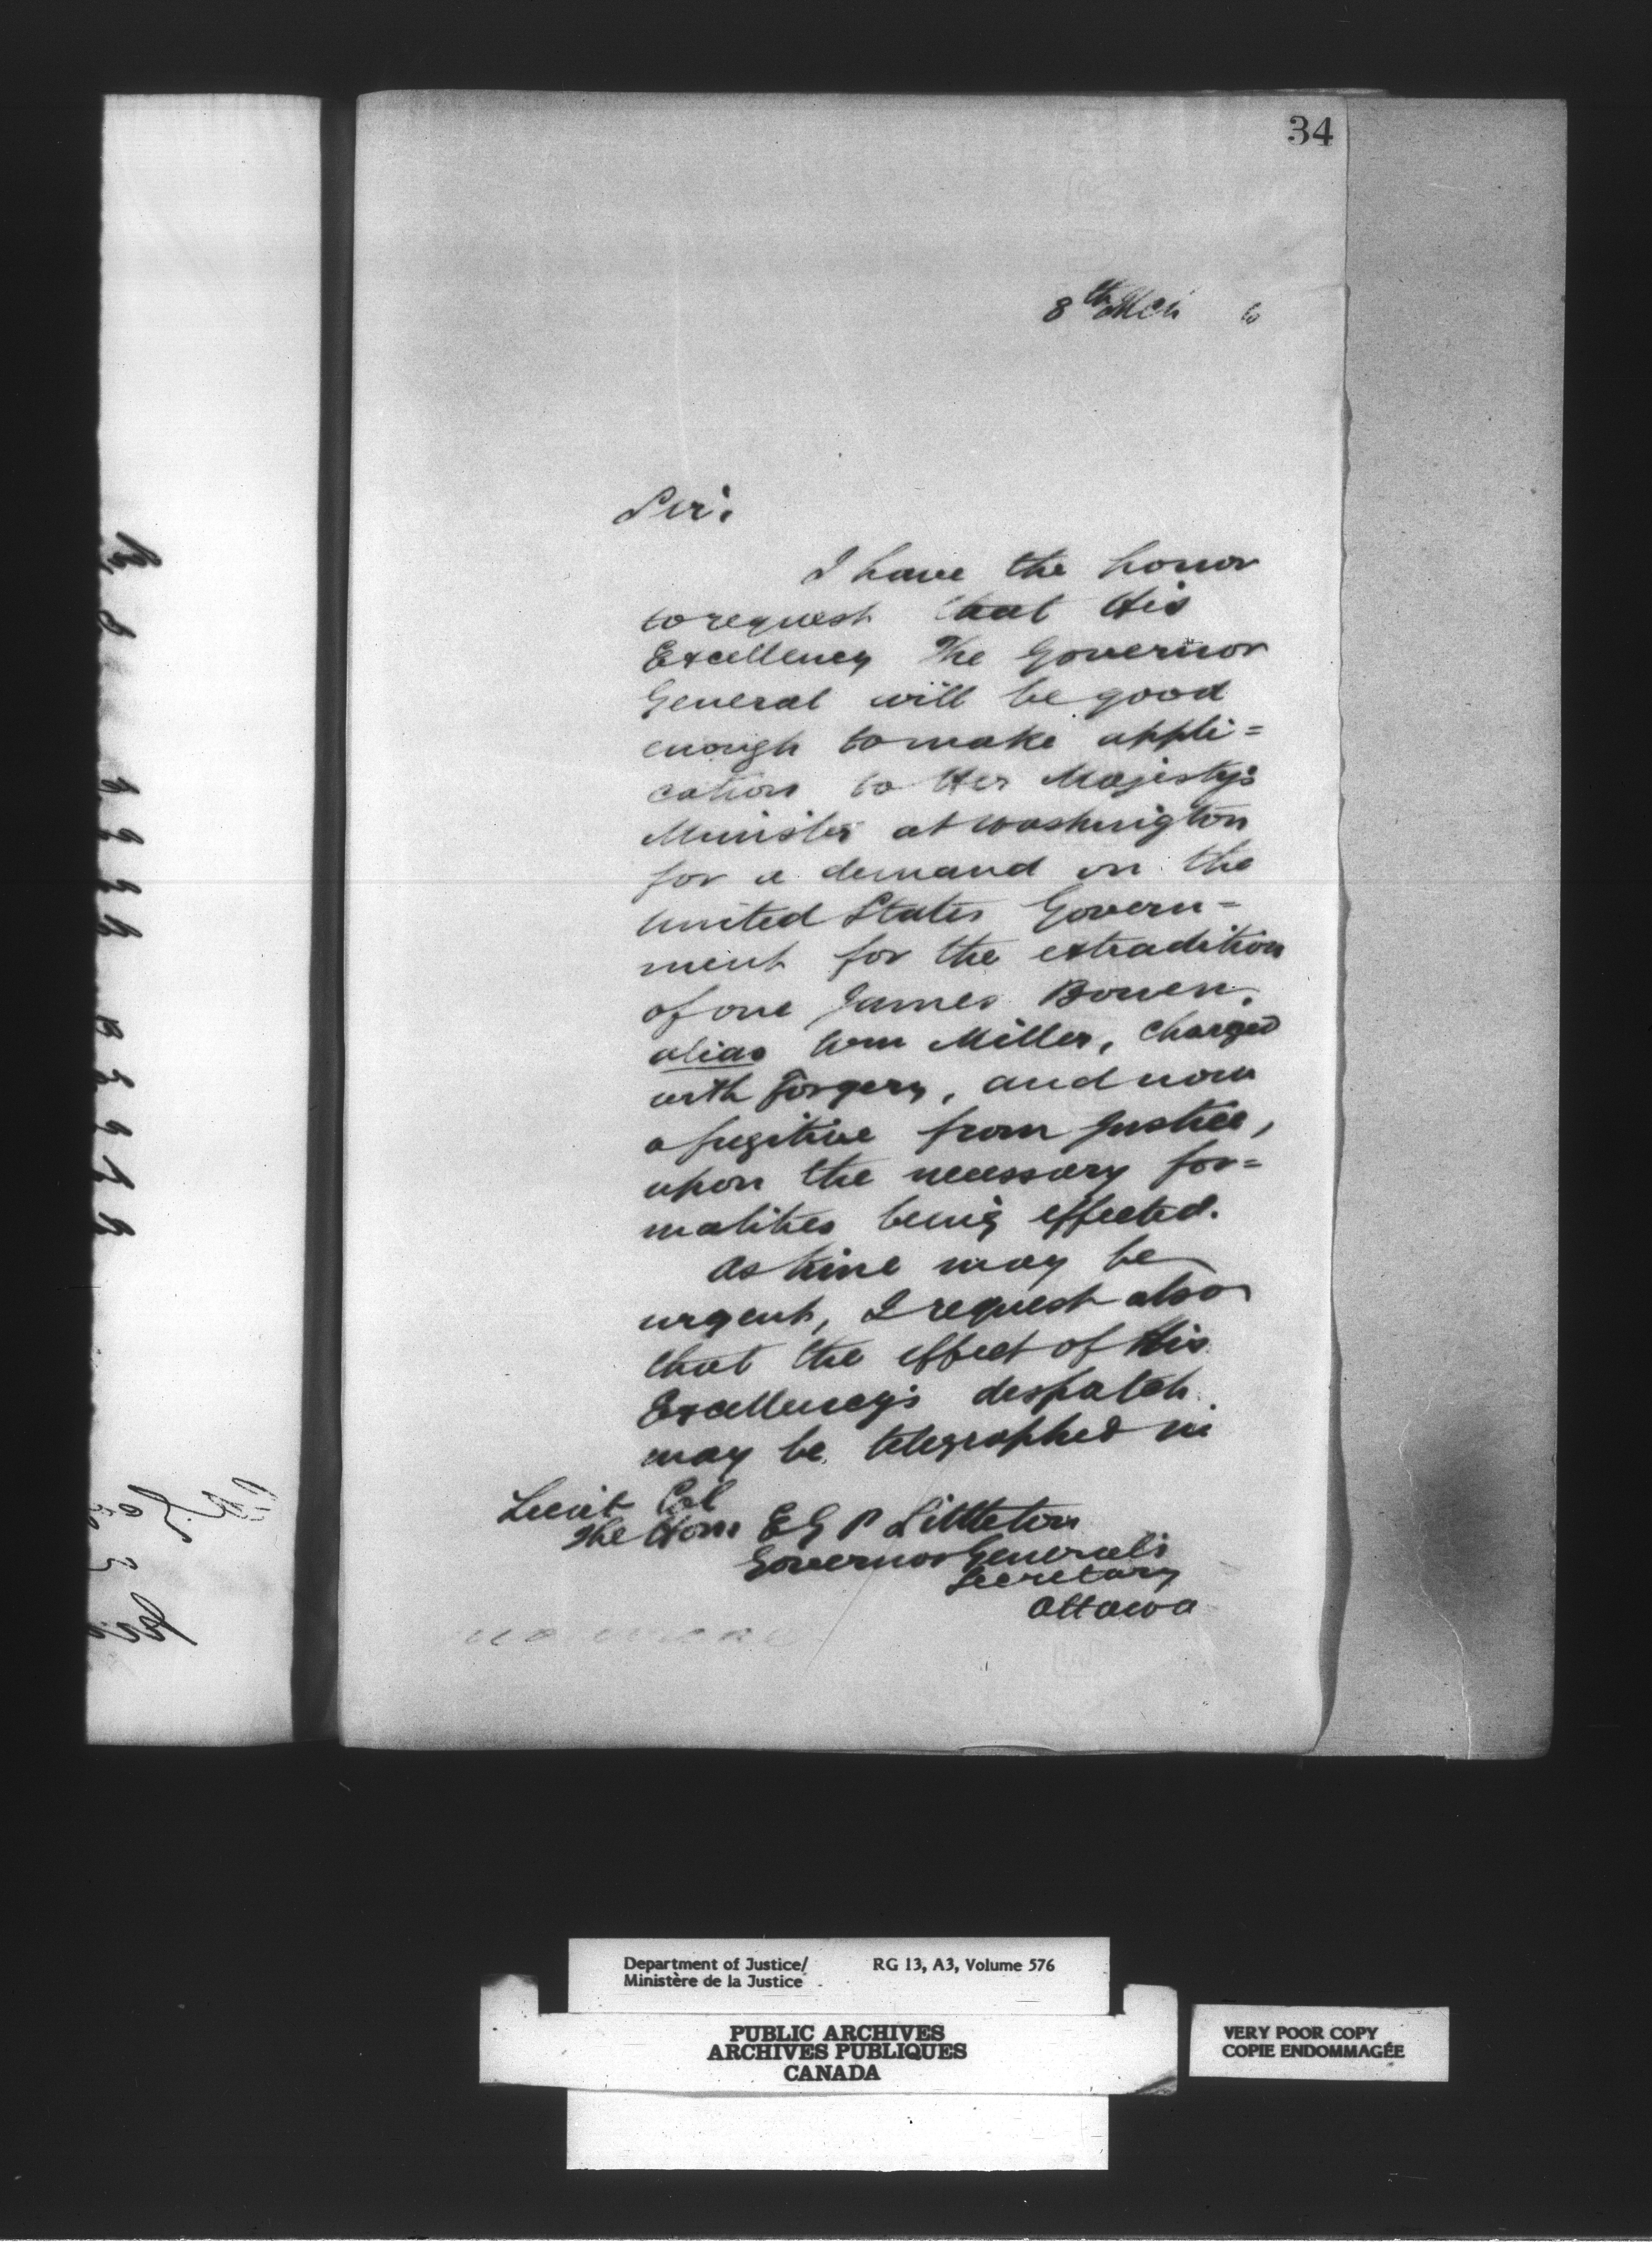 34
8th Mch 6
Sir,
I have the honor
to request that His
Excellency The Governor
General will be good
enough to make appli=
cation to Her Majesty's
Minister at Washington
for a demand on the
United States Govern=
ment for the extradition
of one James Bowen,
alias Wm Miller, charged
with Forgery, and now
a fugitive from Justice,
upon the necessary for=
malities being effected.
As time may be
urgent, I request also
that the effect of His
Excellency's despatch
may be telegraphed in
Lieut Col
The Hon E G P Littleton
Governor General's
Secretary
Ottawa
Department of Justice/ RG 13, A3, Volume 576
Ministère de la Justice
PUBLIC ARCHIVES
ARCHIVES PUBLIQUES
CANADA
VERY POOR COPY
COPIE ENDOMMAGÉE